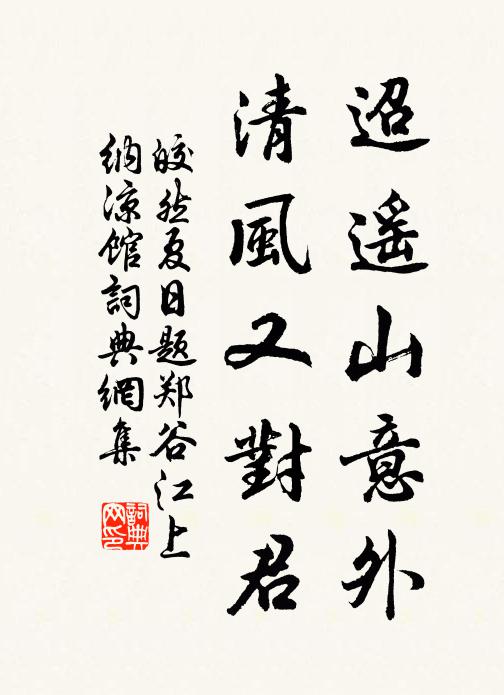 迢遥山意外
清風又對君
皎然夏日题郑谷江上
纳凉馆詞典網集
詞典
网印